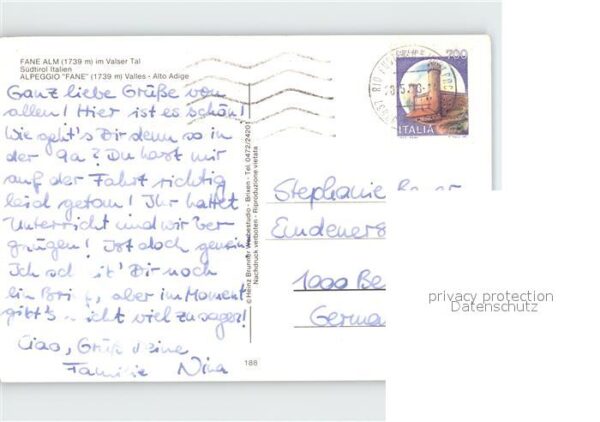 FANE ALM (1739 m) im Valser Tal
Südtirol Italien
ALPEGGIO "FANE" (1739 m) Valles - Alto Adige
Ganz liebe Grüße von
allen! Hier ist es schön!
Wie geht's Dir denn so in
der 9a? Du hast mir
auf der Fahrt richtig
leid getan! Ihr hattet
Unterricht und wir Ver
gnügen! Ist doch gemein
Ich Dir noch
, aber im Moment
gibt's nicht viel zu sagen!
Ciao, Grüß Deine
Familie Nina
© Heinz Brunner Werbestudio - Brixen - Tel. 0472/24201
Nachdruck verboten - Riproduzione vietata
188
700
ITALIA
Stephanie
1000 Be
Germa
privacy protection
Datenschutz